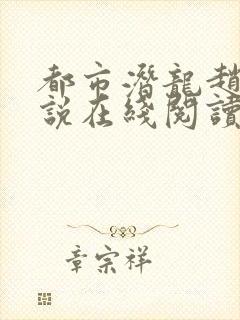 都市潛龍趙
說在綫閱讀
章宗祥